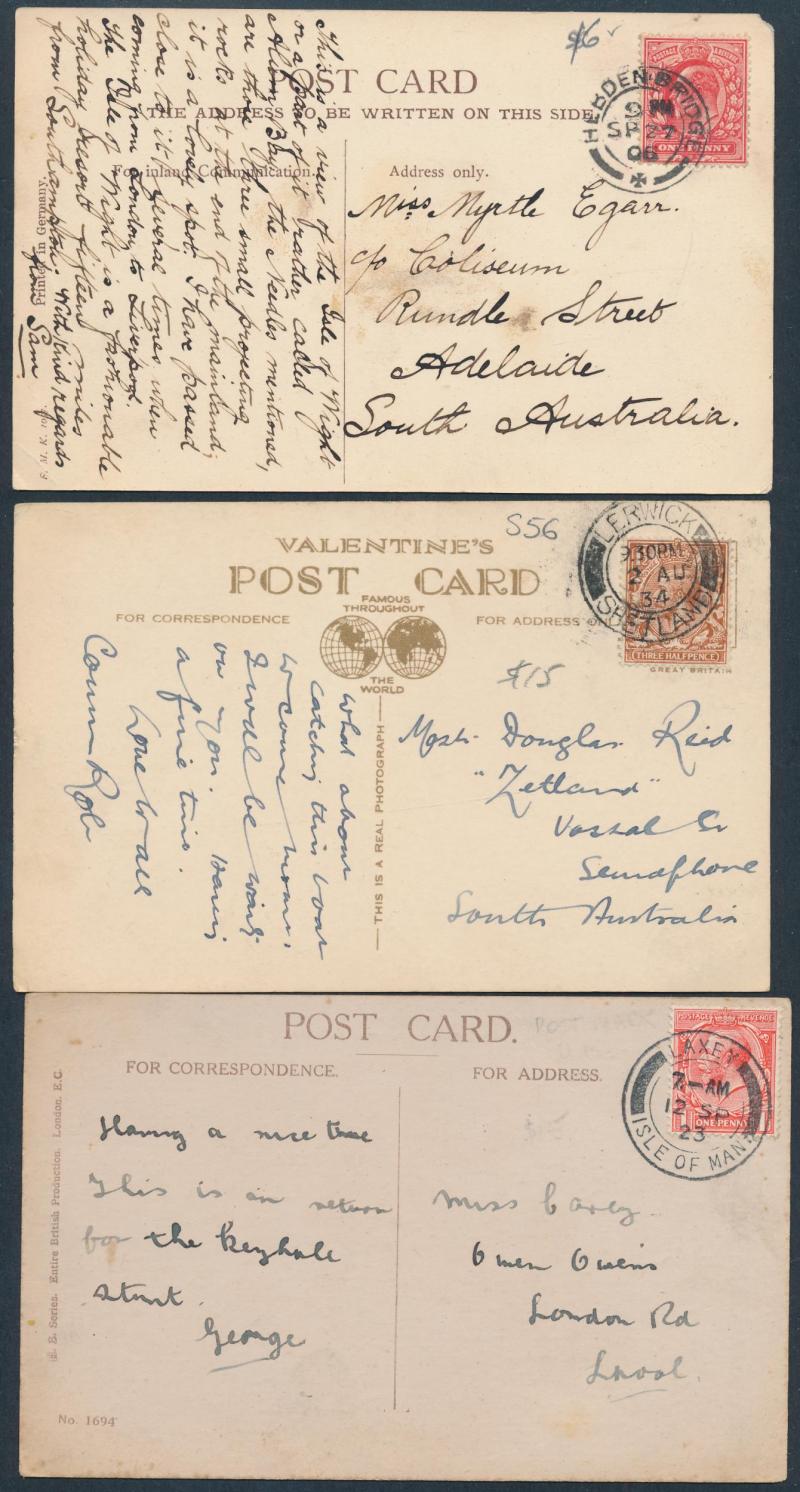 $6
POST CARD
THE ADDRESS TO BE WRITTEN ON THIS SIDE
For inland Communication.
Address only.
HEBDEN-BRIDGE
9 PM
SP 27
06
POSTAGE REVENUE
ONE PENNY
This is a view of the Isle of Wight
or a part of it rather called
Alum Bay, the Needles mentioned,
are those three small projecting
rocks at the end of the mainland,
it is a lovely spot. I have passed
close to it several times when
coming from London to Liverpool.
The Isle of Wight is a fashionable
holiday resort fifteen miles
from Southampton. With kind regards
from Sam
Printed in Germany.
Miss Myrtle Egarr.
c/o Coliseum
Rundle Street
Adelaide
South Australia.
S56
VALENTINE'S
POST CARD
FAMOUS
THROUGHOUT
THE
WORLD
FOR CORRESPONDENCE
FOR ADDRESS ONLY
LERWICK
9.30PM
2 AU
34
SHETLAND
THREE HALFPENCE
GREAT BRITAIN
$15
THIS IS A REAL PHOTOGRAPH
What about
catching this boat
& come home.
I will be waiting
on you. Having
a fine time.
Love to all
Mastr. Douglas Reid
"Zetland"
Semaphore
South Australia
POST CARD.
FOR CORRESPONDENCE.
FOR ADDRESS.
POSTAGE REVENUE
ONE PENNY
LAXEY
7-AM
12 SP
23
ISLE OF MAN
E. Series. Entire British Production. London. E.C.
Having a nice time
This is in return
for the keyhole
stunt.
George
No. 1694
Miss Carey.
Owen Owens
London Rd
Lpool.